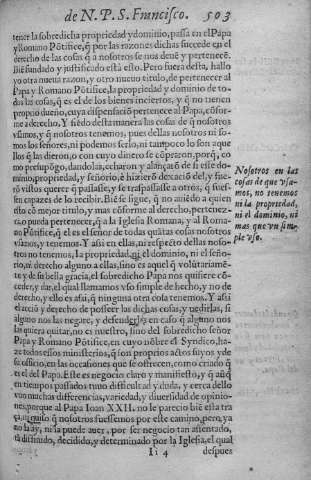 de N. P. S. Francisco. 503
tener la sobredicha propriedad y dominio, passa en el Papa
y Romano Põtifice, ẽ por las razones dichas sucede en el
derecho de las cosas q̃ a nosotros se nos deuẽ y pertenecẽ.
Biẽ fundado y justificado está esto. Pero fuera desta, hallo
yo otra nueua razon, y otro nueuo titulo, de pertenecer al
Papa y Romano Põtifice, la propriedad y dominio de to-
das las cosas, q̃ es el de los bienes inciertos, y q̃ no tienen
proprio dueño, cuya dispensaciõ pertenece al Papa, cõfor-
me a derecho. Y siẽdo desta manera las cosas de q̃ nosotros
vsamos, y q̃ nosotros tenemos, pues dellas nosotros ni so-
mos los señores, ni podemos serlo, ni tampoco lo son aque
llos q̃ las dieron, o con cuyo dinero se cõpraron, porq̃, co-
mo presupõgo, dandolas, echaron, y alançarõ de si esse do-
minio, propriedad, y señorio, è hizierõ dexaciõ del, y fue-
rõ vistos querer q̃ passasse, y se traspassasse a otros, q̃ fues-
sen capezes de lo recibir. Biẽ se sigue, q̃ no auiẽdo a quien
esto cõ mejor titulo, y mas cõforme al derecho, pertenez-
ca, o pueda pertenecer, q̃ a la Iglesia Romana, y al Roma-
no Põtifice, q̃ el es el señor de todas quãtas cosas nosotros
vsamos, y tenemos. Y assi en ellas, ni respecto dellas noso-
tros no tenemos, la propriedad, ni el dominio, ni el seño-
rio, ni derecho alguno a ellas, sino es aquel q̃ voluntariamẽ-
te y de su bella gracia, el sobredicho Papa nos quisiere cõ-
ceder, y dar, el qual llamamos vso simple de hecho, y no de
derecho, y ello es assi, q̃ ninguna otra cosa tenemos. Y assi el
acciõ y derecho de posseer las dichas cosas, y pedirlas, si
alguno nos las negare, y defenderlas en caso q̃ alguno nos
las quiera quitar, no es nuestro, sino del sobredicho señor
Papa y Romano Põtifice, en cuyo nõbre el Syndico, ha-
ze todos essos ministerios, q̃ son proprios actos suyos y de
su officio, en las occasiones que se ofrecen, como criado q̃
es el del Papa. Este es negocio claro y manifiesto, y q̃ aũq̃
en tiempos passados tuuo difficultad y duda, y cerca dello
vuo muchas differencias, variedad, y diuersidad de opinio-
nes, porque al Papa Ioan XXII. no le parecio biẽ esta tra
ça, ni quiso q̃ nosotros fuessemos por este camino, pero ya
no la ay, ni la puede auer, por ser negocio tan assentado,
tã disfinido, decidido, y determinado por la Iglesia, el qual
Ii 4 despues
Nosotros en las
cosas de que vsa-
mos, no tenemos
ni la propriedad,
ni el dominio, ni
mas que vn sim-
ple vso.